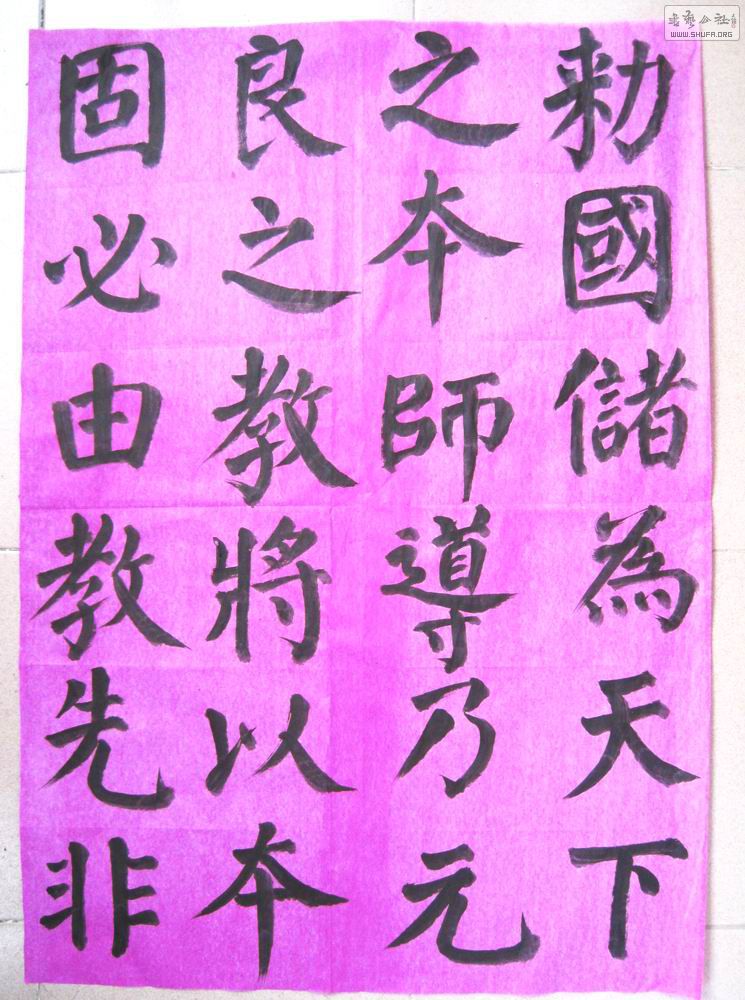 勑國儲為天下
之本師導乃元
良之教將以本
固必由教先非
書藝公社
WWW.SHUFA.ORG